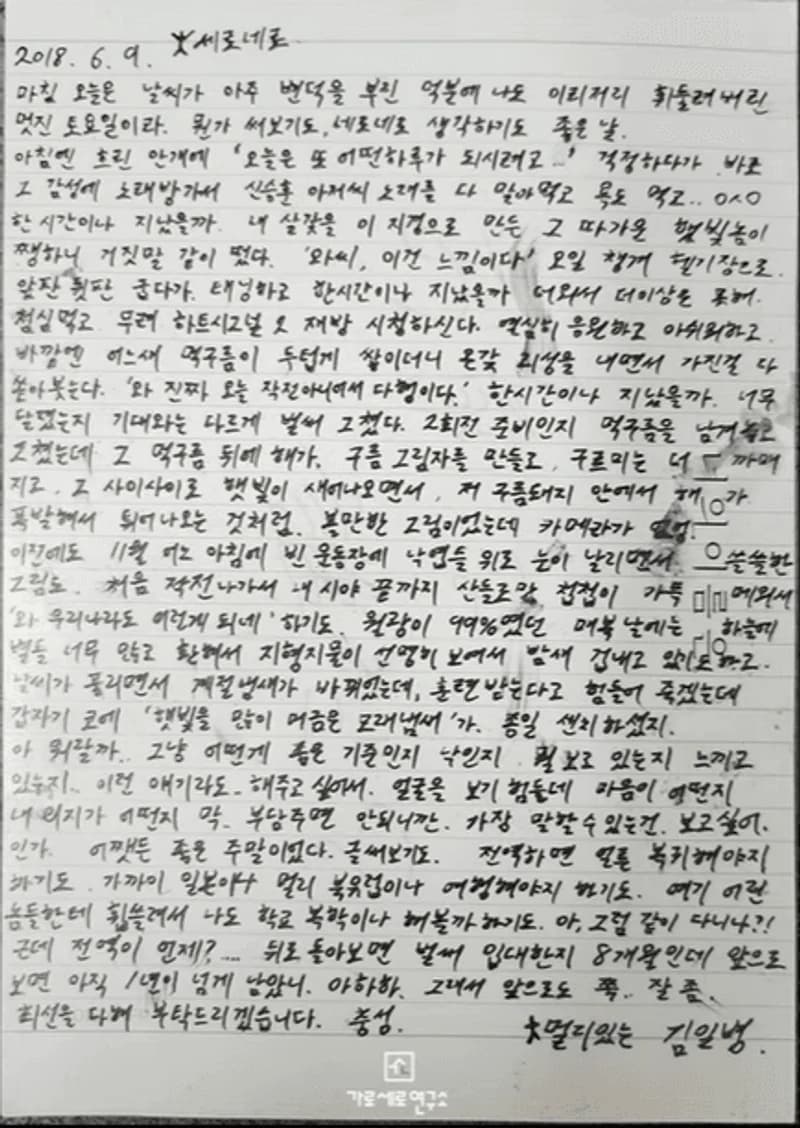 2018. 6. 9. ★세로네로
마침 오늘은 날씨가 아주 변덕을 부린 덕분에 나도 이리저리 휘둘려버린
멋진 토요일이라. 뭔가 써보기도, 네로네로 생각하기도 좋은 날.
아침엔 흐린 안개에 '오늘은 또 어떤하루가 되시려고...' 걱정하다가 바로
그 감성에 노래방가서 신승훈 아저씨 노래를 다 말아먹고 욕도 먹고.. ㅇㅅㅇ
한 시간이나 지났을까. 내 살갗을 이 지경으로 만든 그 따가운 햇빛놈이
쨍하니 거짓말 같이 떴다. '와씨, 이건 느낌이다' 오일 챙겨 헬기장으로.
앞판 뒷판 굽다가. 태닝하고 한시간이나 지났을까 더워서 더이상은 못해.
점심먹고 무려 하트시그널 2 재방 시청하신다. 열심히 응원하고 아쉬워하고.
바깥엔 어느새 먹구름이 두텁게 쌓이더니 온갖 괴성을 내면서 가진걸 다
쏟아붓는다. '와 진짜 오늘 작전아니여서 다행이다.' 한시간이나 지났을까. 너무
달랬는지 기대와는 다르게 벌써 그쳤다. 2회전 준비인지 먹구름을 남겨놓고
그쳤는데 그 먹구름 뒤에 해가. 구름 그림자를 만들고, 구르미는 더 까매
지고. 그 사이사이로 햇빛이 새어나오면서, 저 구름돼지 안에서 해가
폭발해서 튀어나오는 것처럼. 볼만한 그림이었는데 카메라가 없엉.
이전에도 11월 어느 아침에 빈 운동장에 낙엽들 위로 눈이 날리면서 쓸쓸한
그림도. 처음 작전나가서 내 시야 끝까지 산들로만 첩첩이 가득 메워서
'와 우리나라도 이렇게 되네' 하기도. 월광이 99%였던 매복날에는 하늘에
별들 너무 많고 환해서 지형지물이 선명히 보여서 밤새 겁내고 있기도하고.
날씨가 풀리면서 계절냄새가 바뀌었는데, 훈련받는다고 힘들어 죽겠는데
갑자기 코에 '햇빛을 많이 머금은 모래냄새'가. 종일 센치하셨지.
아 뭐랄까.. 그냥 어떻게 좁은 기준인지 낙인지 뭘 보고 있는지 느끼고
있는지.. 이런 얘기라도.. 해주고 싶어서. 얼굴을 보기 힘들데 마음이 어떤지
내 의지가 어떤지 막.. 부담주면 안되니깐. 가장 말할 수 있는건. 보고싶어.
인가. 어쨋든 좋은 주말이었다. 글써보기도. 전역하면 얼른 복귀해야지
하기도. 가까이 일본이나 멀리 북유럽이나 여행해야지 하기도. 여기 어린
놈들한테 휩쓸려서 나도 학교 복학이나 해볼까 하기도. 아, 그럼 같이 다니나?!
근데 전역이 언제?.... 뒤로 돌아보면 벌써 입대한지 8개월인데 앞으로
보면 아직 1년이 넘게 남았니. 아하하. 그래서 앞으로도 쭉.. 잘 좀.
최선을 다해 부탁드리겠습니다. 충성.
★멀리있는 김일병.
가로세로연구소